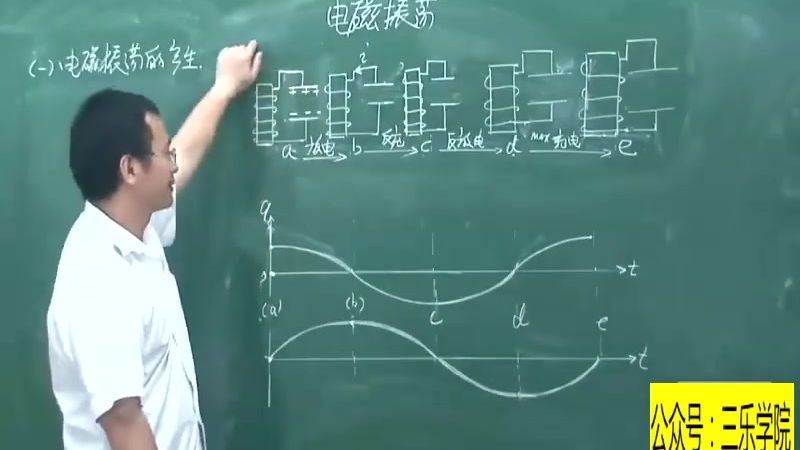 电磁振荡
(一)、电磁振荡的产生.
i
+ + + +
- -
a 放电 b 反充 c 反放电 d 充电 e
q
0 t
(a) (b) c d e
t
公众号：三乐学院